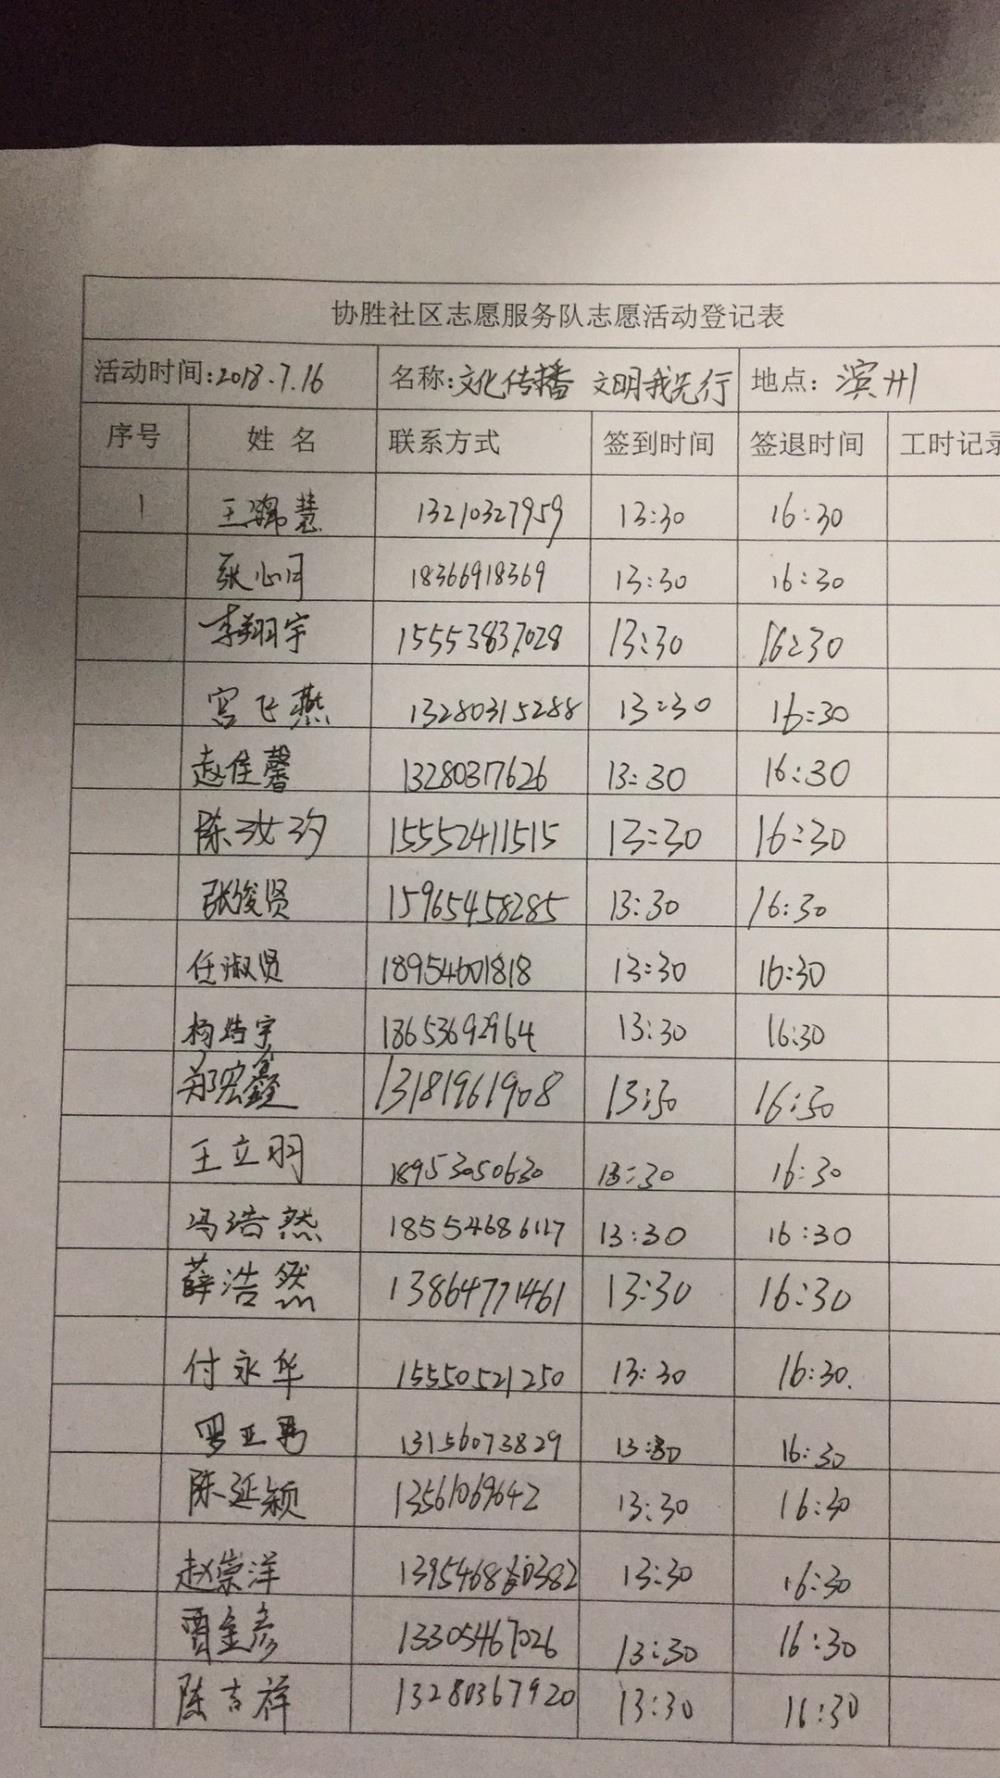 协胜社区志愿服务队志愿活动登记表
活动时间:2018.7.16 名称:文化传播 文明我先行 地点: 滨州
序号 姓名 联系方式 签到时间 签退时间 工时记录
1 王锦慧 13210327959 13:30 16:30
张心月 18366918369 13:30 16:30
李翔宇 15553837028 13:30 16:30
宫飞燕 13280315288 13:30 16:30
赵佳馨 13280317626 13:30 16:30
陈汝汐 15552411515 13:30 16:30
张俊贤 15965458285 13:30 16:30
任淑贤 18954601818 13:30 16:30
杨浩宇 18653692964 13:30 16:30
郑宏鑫 13181961908 13:30 16:30
王立羽 18953050630 13:30 16:30
冯浩然 18554686117 13:30 16:30
薛浩然 13864771461 13:30 16:30
付永华 15550521250 13:30 16:30.
罗亚男 13156073829 13:30 16:30
陈延颖 13561069642 13:30 16:30
赵崇洋 13:30 16:30
贾金彦 13305467026 13:30 16:30
陈吉祥 13280367920 13:30 16:30